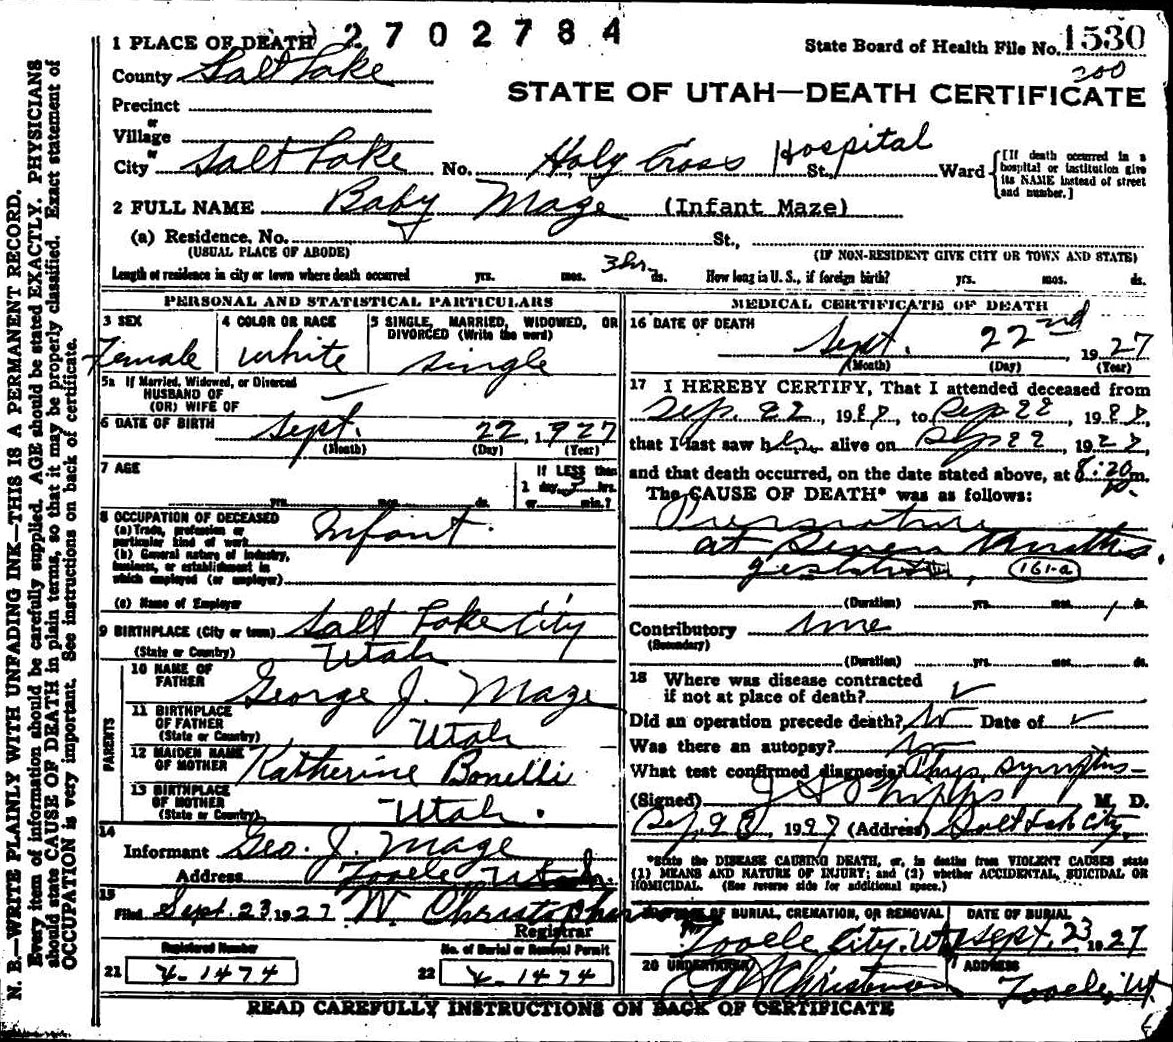 2702784
1 PLACE OF DEATH
State Board of Health File No. 1530
County Salt Lake
200
STATE OF UTAH—DEATH CERTIFICATE
Precinct
or
Village
or
City Salt Lake No. Holy Cross Hospital St., Ward
[If death occurred in a hospital or institution give its NAME instead of street and number.]
2 FULL NAME Baby Maze (Infant Maze)
(a) Residence. No. St.,
(USUAL PLACE OF ABODE) (IF NON-RESIDENT GIVE CITY OR TOWN AND STATE)
Length of residence in city or town where death occurred yrs. mos. 3 hrs ds. How long in U. S., if foreign birth? yrs. mos. ds.
PERSONAL AND STATISTICAL PARTICULARS
3 SEX
Female
4 COLOR OR RACE
White
5 SINGLE, MARRIED, WIDOWED, OR DIVORCED (Write the word)
Single
5a If Married, Widowed, or Divorced
HUSBAND OF
(OR) WIFE OF
6 DATE OF BIRTH Sept. 22, 1927
(Month) (Day) (Year)
7 AGE
yrs. mos. ds.
If LESS than
1 day, 3 hrs.
or min.?
8 OCCUPATION OF DECEASED
(a) Trade, profession or
particular kind of work
Infant.
(b) General nature of industry,
business, or establishment in
which employed (or employer)
(c) Name of Employer
9 BIRTHPLACE (City or town) Salt Lake City
(State or Country) Utah
PARENTS
10 NAME OF
FATHER George J. Maze
11 BIRTHPLACE
OF FATHER
(State or Country) Utah
12 MAIDEN NAME
OF MOTHER Katherine Bonelli
13 BIRTHPLACE
OF MOTHER
(State or Country) Utah.
14
Informant Geo. J. Maze
Address Tooele Utah.
15
Filed Sept. 23, 1927 W. Christopherson
Registrar
Registered Number
21 X-1474
No. of Burial or Removal Permit
22 X-1474
MEDICAL CERTIFICATE OF DEATH
16 DATE OF DEATH
Sept. 22nd 1927
(Month) (Day) (Year)
17 I HEREBY CERTIFY, That I attended deceased from
Sep. 22, 1927, to Sep 22, 1927
that I last saw her alive on Sep 22 1927
and that death occurred, on the date stated above, at 8:20 m.
P.
The CAUSE OF DEATH* was as follows:
Premature
at Seven Months.
gestation, 161-a
(Duration) yrs. mos. 1 ds.
Contributory
(Secondary)
(Duration) yrs. mos. ds.
18 Where was disease contracted
if not at place of death? ✓
Did an operation precede death? No Date of ✓
Was there an autopsy? No
What test confirmed diagnosis? Phys. symptms—
(Signed) Phipps M. D.
Sep. 23, 1927 (Address) Salt Lake City.
*State the DISEASE CAUSING DEATH, or, in deaths from VIOLENT CAUSES state
(1) MEANS AND NATURE OF INJURY; and (2) whether ACCIDENTAL, SUICIDAL OR
HOMICIDAL. (See reverse side for additional space.)
OF BURIAL, CREMATION, OR REMOVAL
Tooele City. Ut
DATE OF BURIAL
Sept. 23 1927
20 UNDERTAKER
Christensen
ADDRESS
Tooele, Ut.
READ CAREFULLY INSTRUCTIONS ON BACK OF CERTIFICATE
N. B.—WRITE PLAINLY WITH UNFADING INK—THIS IS A PERMANENT RECORD.
Every item of information should be carefully supplied. AGE should be stated EXACTLY. PHYSICIANS
should state CAUSE OF DEATH in plain terms, so that it may be properly classified. Exact statement of
OCCUPATION is very important. See instructions on back of certificate.